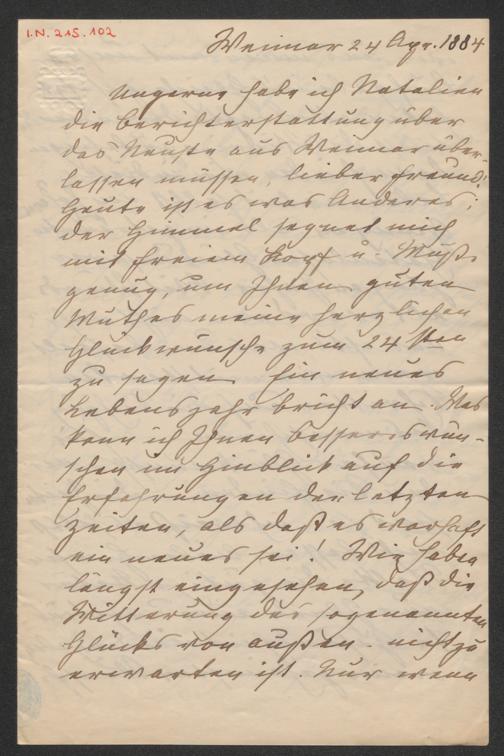 I.N. 215.102
Weimar 24 Apr. 1884
Ungerne habe ich Natalien
die Berichterstattung über
das Neuste aus Weimar über-
lassen müssen, lieber Freund!
Heute ist es was Anderes;
der Himmel segnet mich
mit freiem Kopf u Muße
genug, um Ihnen guten
Muthes meine herzlichen
Glückwünsche zum 24sten
zu sagen. Ein neues
Lebensjahr bricht an. Was
kann ich Ihnen besseres wün-
schen im Hinblick auf die
Erfahrungen der letzten
Zeiten, als daß es wahrhaft
ein neues sei! Wir haben
längst eingesehen, daß die
Witterung des sogenannten
Glücks von außen nicht zu
erwarten ist. Nur wenn